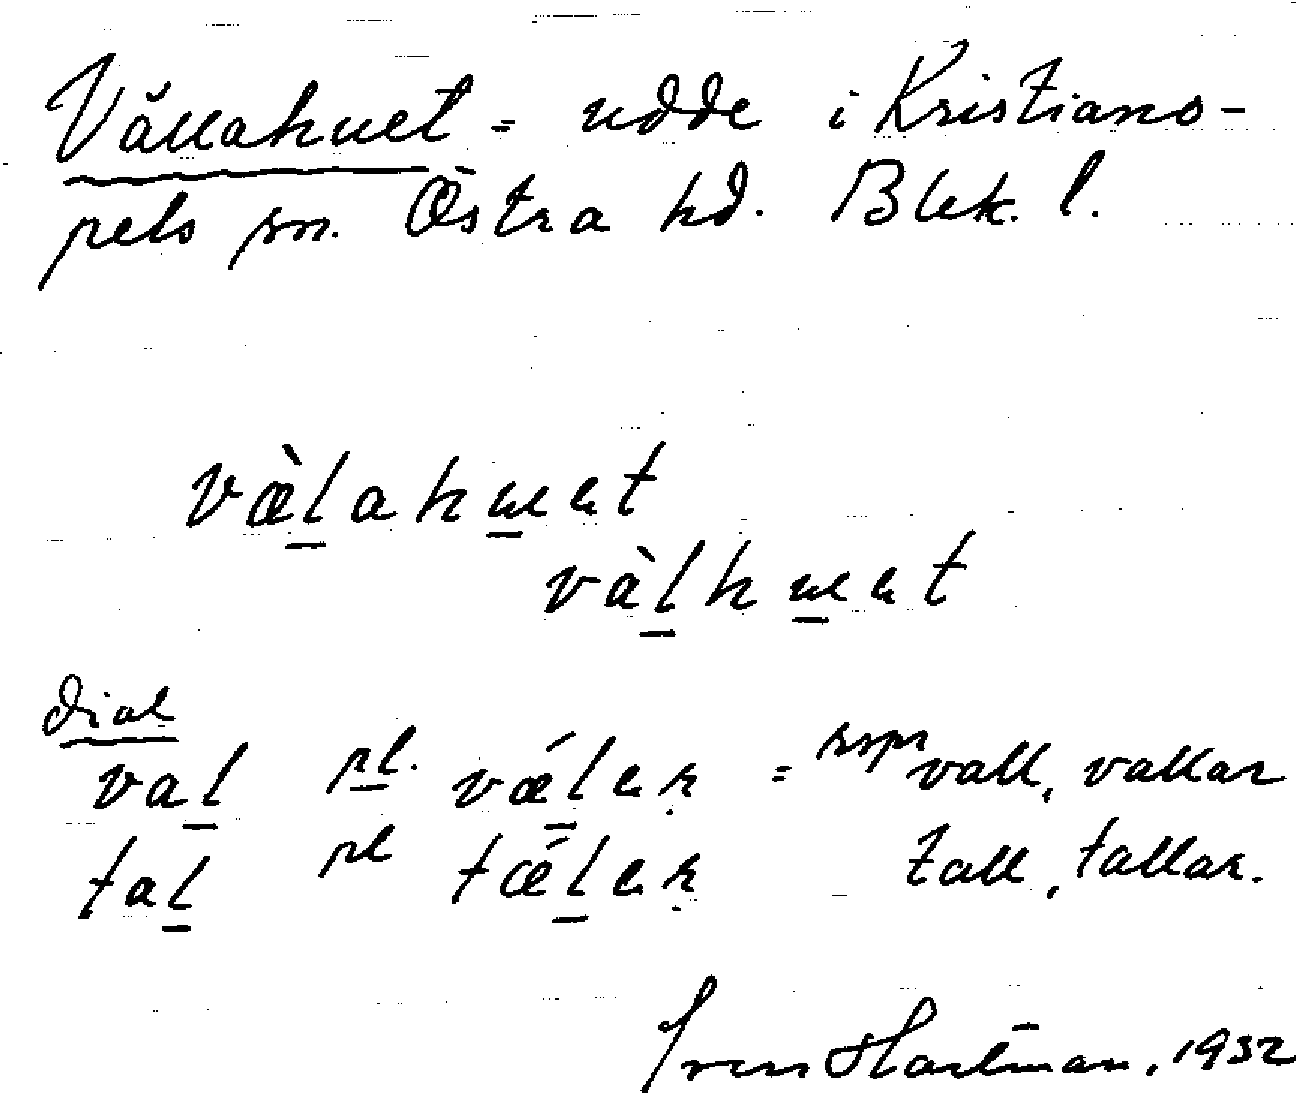 Vållahuet = udde i Kristiano-
pels sn. Östra hd. Blek. l.
væ̀l̲ahu̲et
vàl̲hu̲et
dial
val̲ pl. vǽl̲eṛ = rspr vall, vallar
tal̲ pl tǽl̲eṛ tall, tallar.
Sven Hartman, 1932